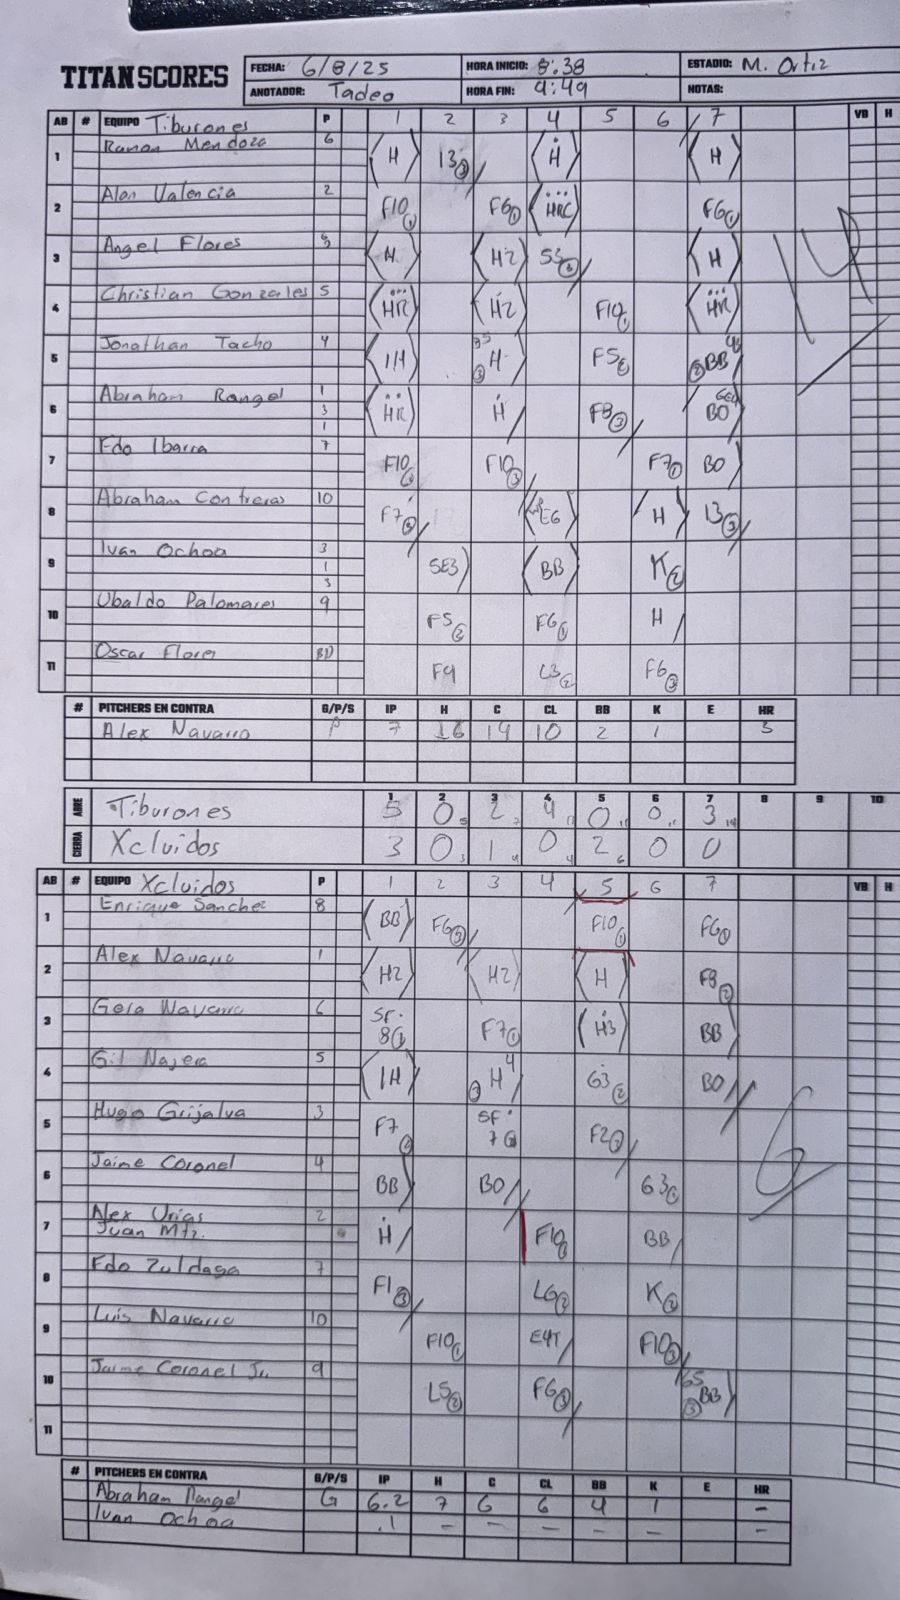 TITAN SCORES
FECHA: 6/8/25 HORA INICIO: 8:38 ESTADIO: M. Ortiz
ANOTADOR: Tadeo HORA FIN: 9:49 NOTAS:
AB # EQUIPO Tiburones P 1 2 3 4 5 6 7 VB H
1 Ramon Mendoza 6 H 13③ H H
2 Alan Valencia 2 F10① F6① HR F6①
3 Angel Flores H H2 53③ H
4 Christian Gonzales 5 HR H2 F10① HR
5 Jonathan Tacho 4 IH 35 ③ H F5② ② BB
6 Abraham Rangel 1 3 1 HR H F8③ BO
7 Fdo Ibarra 7 F10② F10③ F7① BO
8 Abraham Contreras 10 F7③ E6 H 13③
9 Ivan Ochoa 3 1 3 SE3 BB K②
10 Ubaldo Palomares 9 F5② F6① H
11 Oscar Flores BD F4 L3② F6③
14
# PITCHERS EN CONTRA G/P/S IP H C CL BB K E HR
Alex Navarro P 7 16 14 10 2 1 3
1 2 3 4 5 6 7 8 9 10
ABRE Tiburones 5 0 5 2 7 4 11 0 11 0 11 3 14
CIERRA Xcluidos 3 0 3 1 4 0 4 2 6 0 0
AB # EQUIPO Xcluidos P 1 2 3 4 5 6 7 VB H
1 Enrique Sanchez 8 BB F6③ F10① F6①
2 Alex Navarro 1 H2 H2 H F8②
3 Gera Navarro 6 SF 8① F7① H3 BB
4 Gil Najera 5 IH ② H 4 63② BO
5 Hugo Grijalva 3 F7② SF 7③ F2③
6 Jaime Coronel 4 BB BO 63①
7 Alex Urias 2 H F10① BB
Juan Mtz.
8 Fdo Zuldaga 7 F1③ L6② K②
9 Luis Navarro 10 F10① E4T F10③
10 Jaime Coronel Jr. 9 L5② F6③ 65 ③ BB
11
6
# PITCHERS EN CONTRA G/P/S IP H C CL BB K E HR
Abraham Rangel G 6.2 7 6 6 4 1 -
Ivan Ochoa .1 - - - - - -